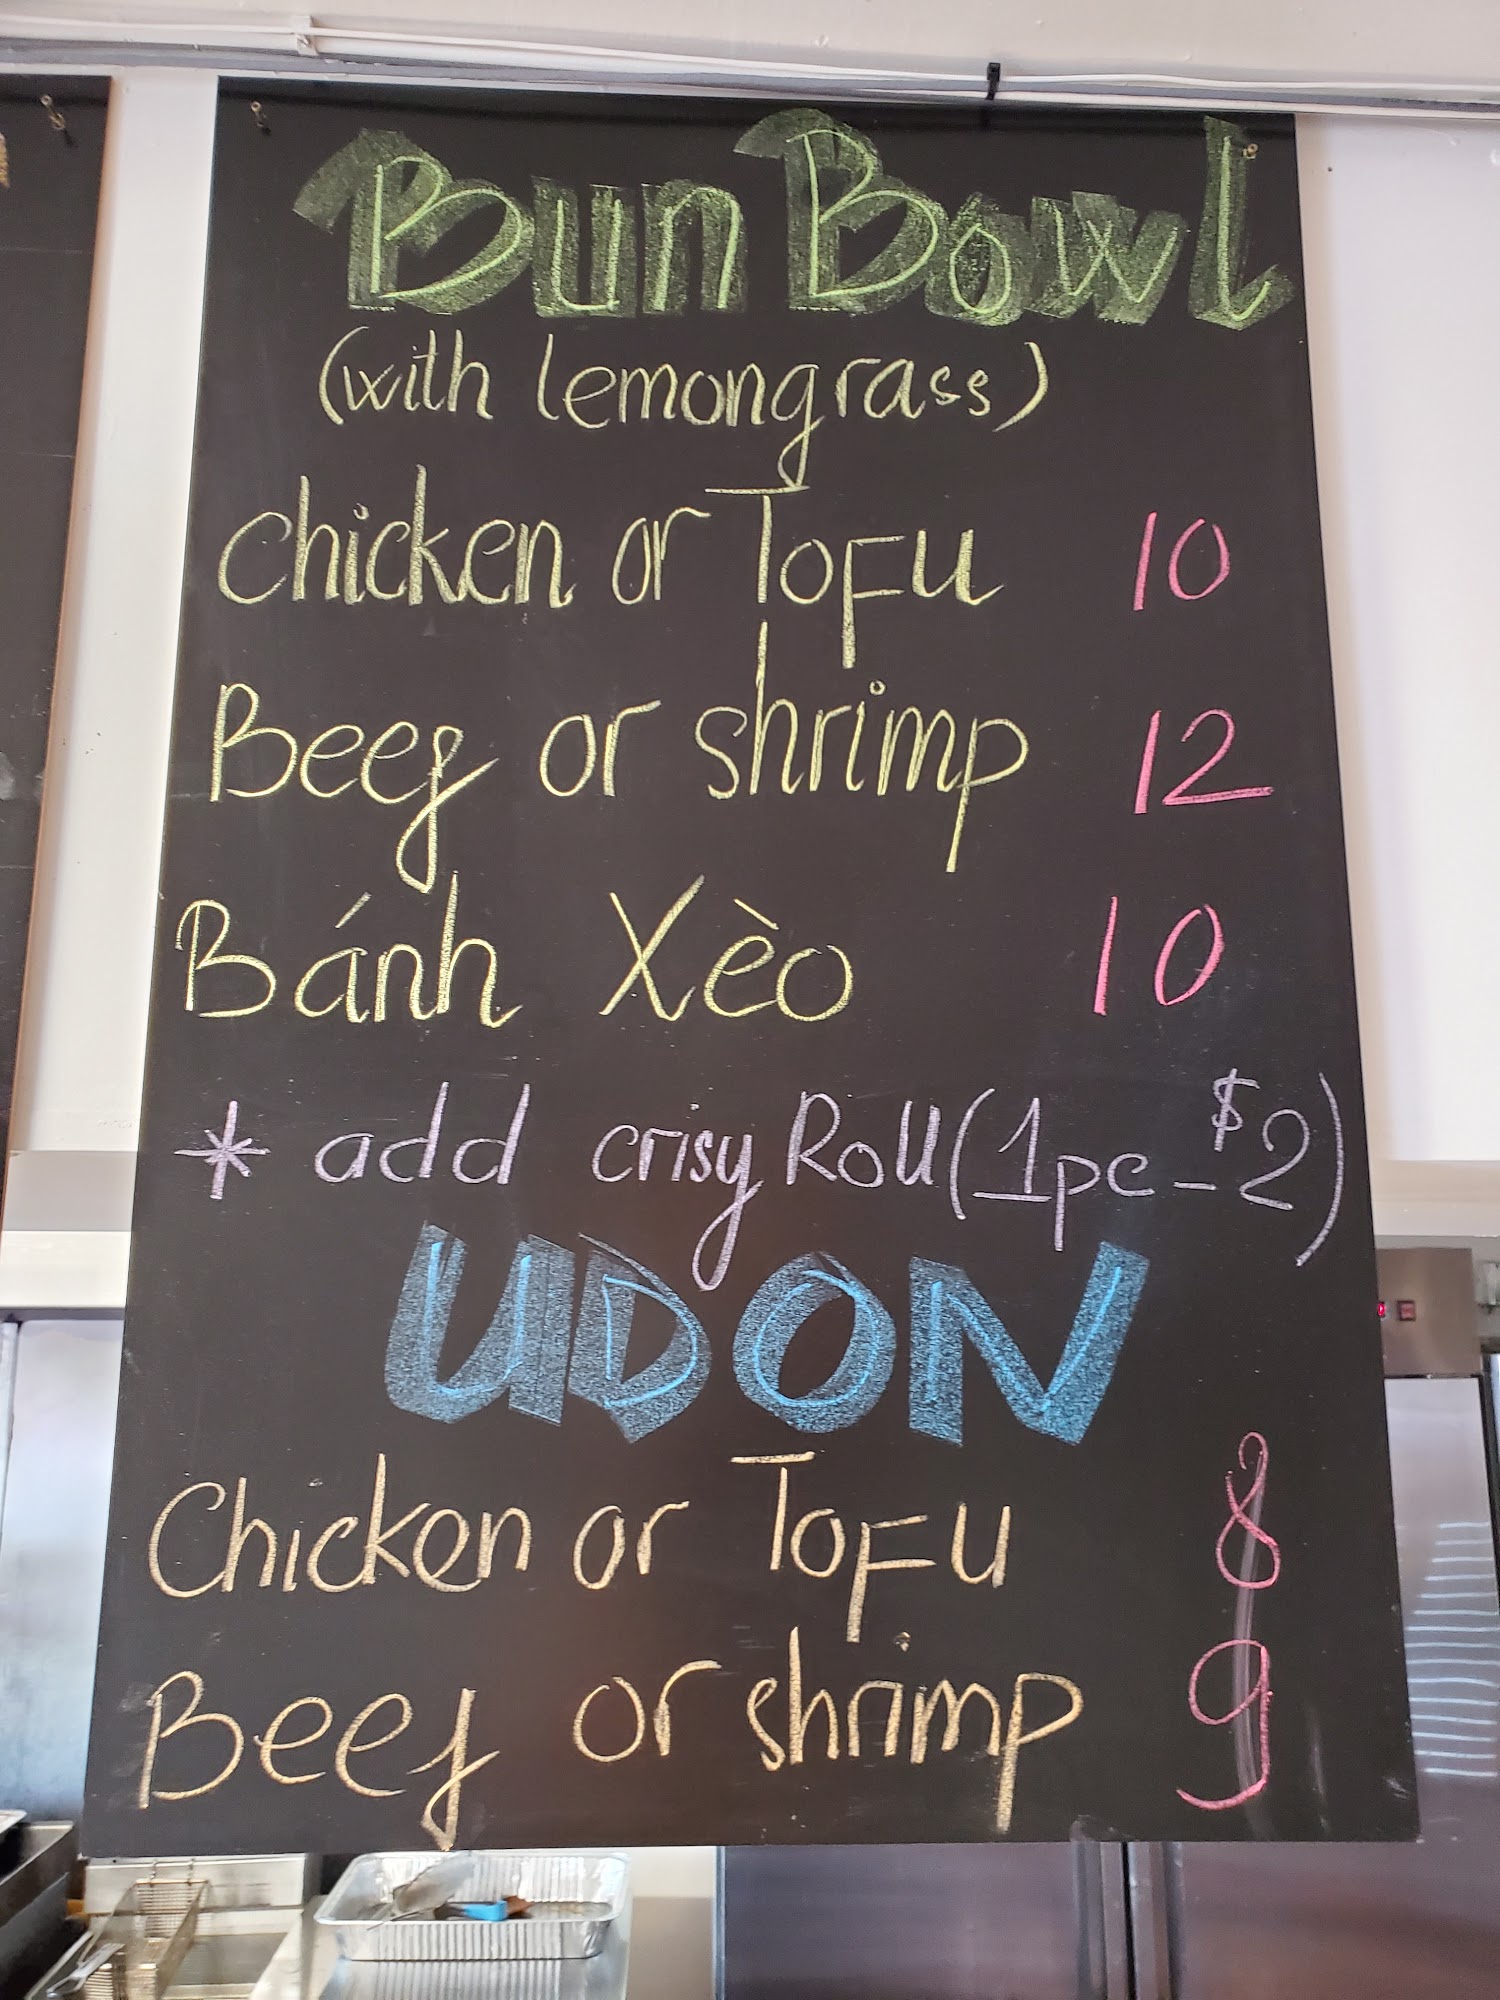 Bun Bowl
(with lemongrass)
Chicken or ToFu 10
Beef or shrimp 12
Bánh Xèo 10
* add crisy Roll (1pc - $2)
UDON
Chicken or ToFu 8
Beef or shrimp 9